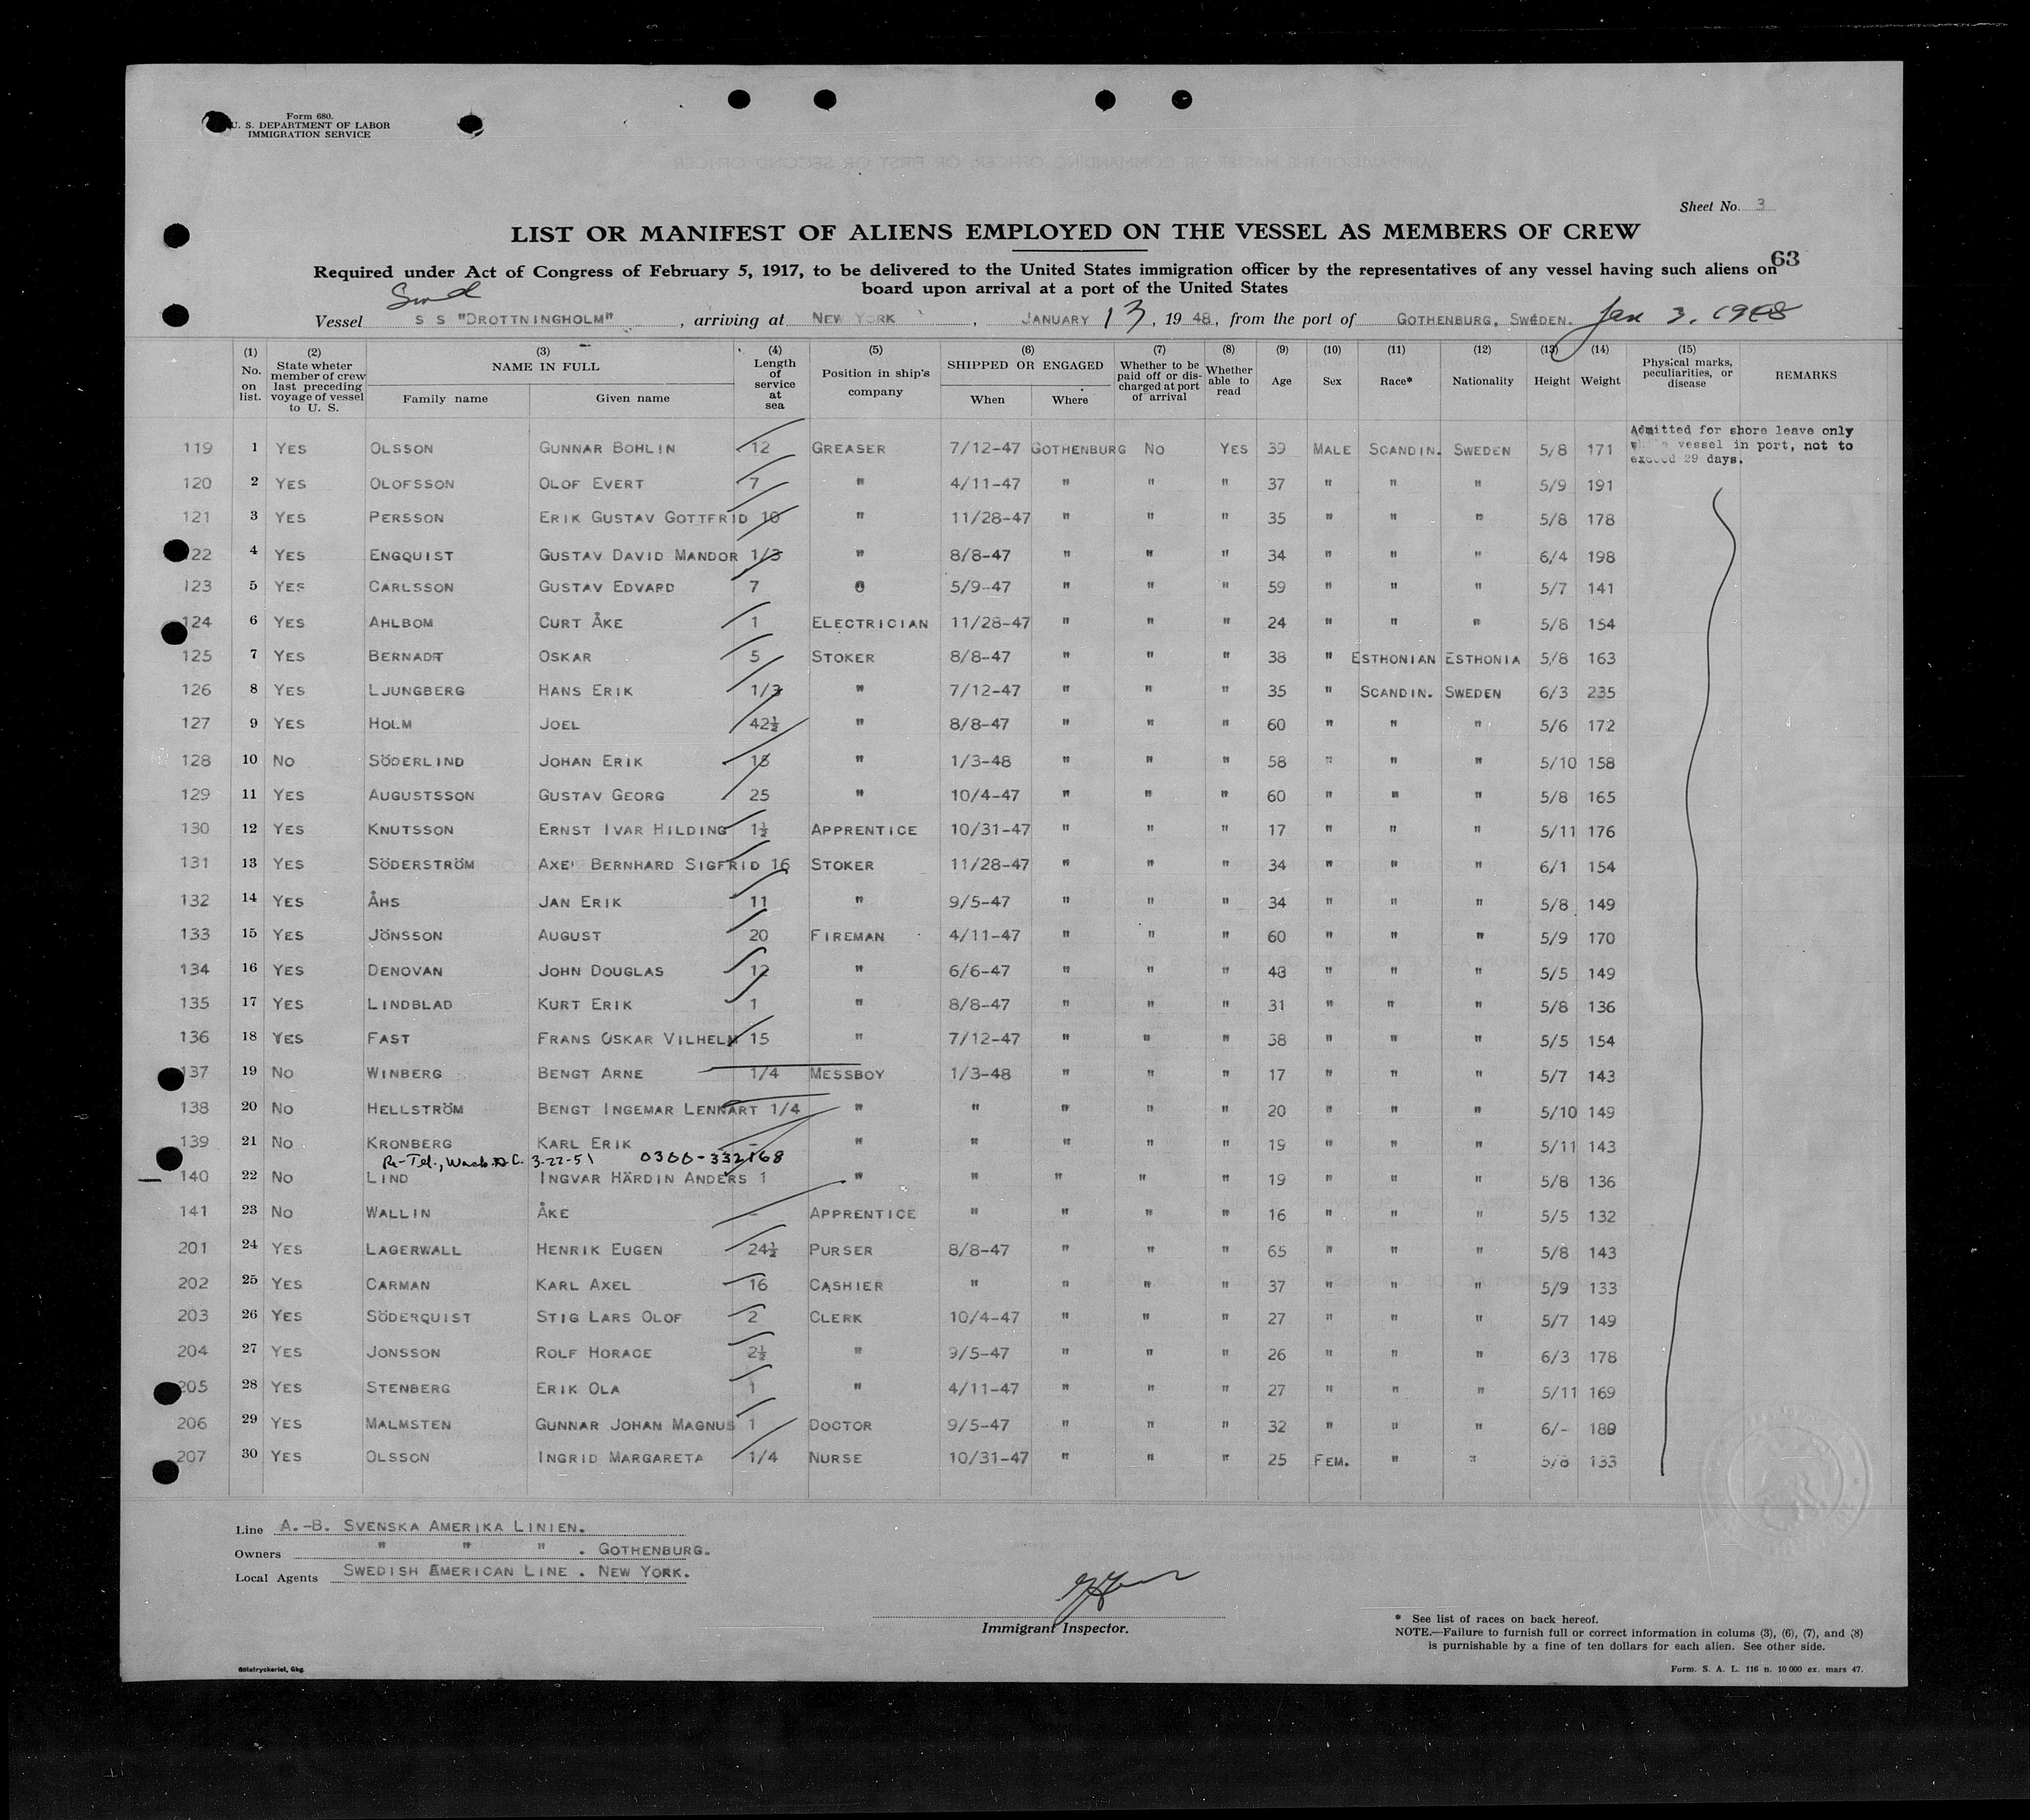 Form 680.
U. S. DEPARTMENT OF LABOR
IMMIGRATION SERVICE
Sheet No. 3
LIST OR MANIFEST OF ALIENS EMPLOYED ON THE VESSEL AS MEMBERS OF CREW
63
Required under Act of Congress of February 5, 1917, to be delivered to the United States immigration officer by the representatives of any vessel having such aliens on
board upon arrival at a port of the United States
Vessel S S "DROTTNINGHOLM", arriving at NEW YORK, JANUARY 13, 1948, from the port of GOTHENBURG, SWEDEN. Jan 3. 1948
(1) No. on list. (2) State wheter member of crew last preceding voyage of vessel to U. S. (3) NAME IN FULL Family name Given name (4) Length of service at sea (5) Position in ship's company (6) SHIPPED OR ENGAGED When Where (7) Whether to be paid off or discharged at port of arrival (8) Whether able to read (9) Age (10) Sex (11) Race* (12) Nationality (13) Height (14) Weight (15) Physical marks, peculiarities, or disease REMARKS
Admitted for shore leave only
while vessel in port, not to
exceed 29 days.
119 1 YES OLSSON GUNNAR BOHLIN 12 GREASER 7/12-47 GOTHENBURG NO YES 39 MALE SCANDIN. SWEDEN 5/8 171
120 2 YES OLOFSSON OLOF EVERT 7 " 4/11-47 " " " 37 " " " 5/9 191
121 3 YES PERSSON ERIK GUSTAV GOTTFRID 10 " 11/28-47 " " " 35 " " " 5/8 178
122 4 YES ENGQUIST GUSTAV DAVID MANDOR 1/3 " 8/8-47 " " " 34 " " " 6/4 198
123 5 YES CARLSSON GUSTAV EDVARD 7 " 5/9-47 " " " 59 " " " 5/7 141
124 6 YES AHLBOM CURT ÅKE 1 ELECTRICIAN 11/28-47 " " " 24 " " " 5/8 154
125 7 YES BERNADT OSKAR 5 STOKER 8/8-47 " " " 38 " ESTHONIAN ESTHONIA 5/8 163
126 8 YES LJUNGBERG HANS ERIK 1/3 " 7/12-47 " " " 35 " SCANDIN. SWEDEN 6/3 235
127 9 YES HOLM JOEL 42½ " 8/8-47 " " " 60 " " " 5/6 172
128 10 NO SÖDERLIND JOHAN ERIK 18 " 1/3-48 " " " 58 " " " 5/10 158
129 11 YES AUGUSTSSON GUSTAV GEORG 25 " 10/4-47 " " " 60 " " " 5/8 165
130 12 YES KNUTSSON ERNST IVAR HILDING 1½ APPRENTICE 10/31-47 " " " 17 " " " 5/11 176
131 13 YES SÖDERSTRÖM AXEL BERNHARD SIGFRID 16 STOKER 11/28-47 " " " 34 " " " 6/1 154
132 14 YES ÅHS JAN ERIK 11 " 9/5-47 " " " 34 " " " 5/8 149
133 15 YES JÖNSSON AUGUST 20 FIREMAN 4/11-47 " " " 60 " " " 5/9 170
134 16 YES DENOVAN JOHN DOUGLAS 12 " 6/6-47 " " " 48 " " " 5/5 149
135 17 YES LINDBLAD KURT ERIK 1 " 8/8-47 " " " 31 " " " 5/8 136
136 18 YES FAST FRANS OSKAR VILHELM 15 " 7/12-47 " " " 38 " " " 5/5 154
137 19 NO WINBERG BENGT ARNE 1/4 MESSBOY 1/3-48 " " " 17 " " " 5/7 143
138 20 NO HELLSTRÖM BENGT INGEMAR LENNART 1/4 " " " " " 20 " " " 5/10 149
139 21 NO KRONBERG KARL ERIK - " " " " " 19 " " " 5/11 143
Re-Tel., Wash. D.C. 3-22-51 0300-332168
140 22 NO LIND INGVAR HÄRDIN ANDERS 1 " " " " " 19 " " " 5/8 136
141 23 NO WALLIN ÅKE - APPRENTICE " " " " 16 " " " 5/5 132
201 24 YES LAGERWALL HENRIK EUGEN 24½ PURSER 8/8-47 " " " 65 " " " 5/8 143
202 25 YES CARMAN KARL AXEL 16 CASHIER " " " " 37 " " " 5/9 133
203 26 YES SÖDERQUIST STIG LARS OLOF 2 CLERK 10/4-47 " " " 27 " " " 5/7 149
204 27 YES JONSSON ROLF HORACE 2½ " 9/5-47 " " " 26 " " " 6/3 178
205 28 YES STENBERG ERIK OLA 1 " 4/11-47 " " " 27 " " " 5/11 169
206 29 YES MALMSTEN GUNNAR JOHAN MAGNUS 1 DOCTOR 9/5-47 " " " 32 " " " 6/- 180
207 30 YES OLSSON INGRID MARGARETA 1/4 NURSE 10/31-47 " " " 25 FEM. " " 5/8 133
Line A.-B. SVENSKA AMERIKA LINIEN.
Owners " " " . GOTHENBURG.
Local Agents SWEDISH AMERICAN LINE . NEW YORK.
Immigrant Inspector.
* See list of races on back hereof.
NOTE.—Failure to furnish full or correct information in colums (3), (6), (7), and (8)
is purnishable by a fine of ten dollars for each alien. See other side.
Götatryckeriet, Gbg.
Form. S. A. L. 116 n. 10 000 ex. mars 47.